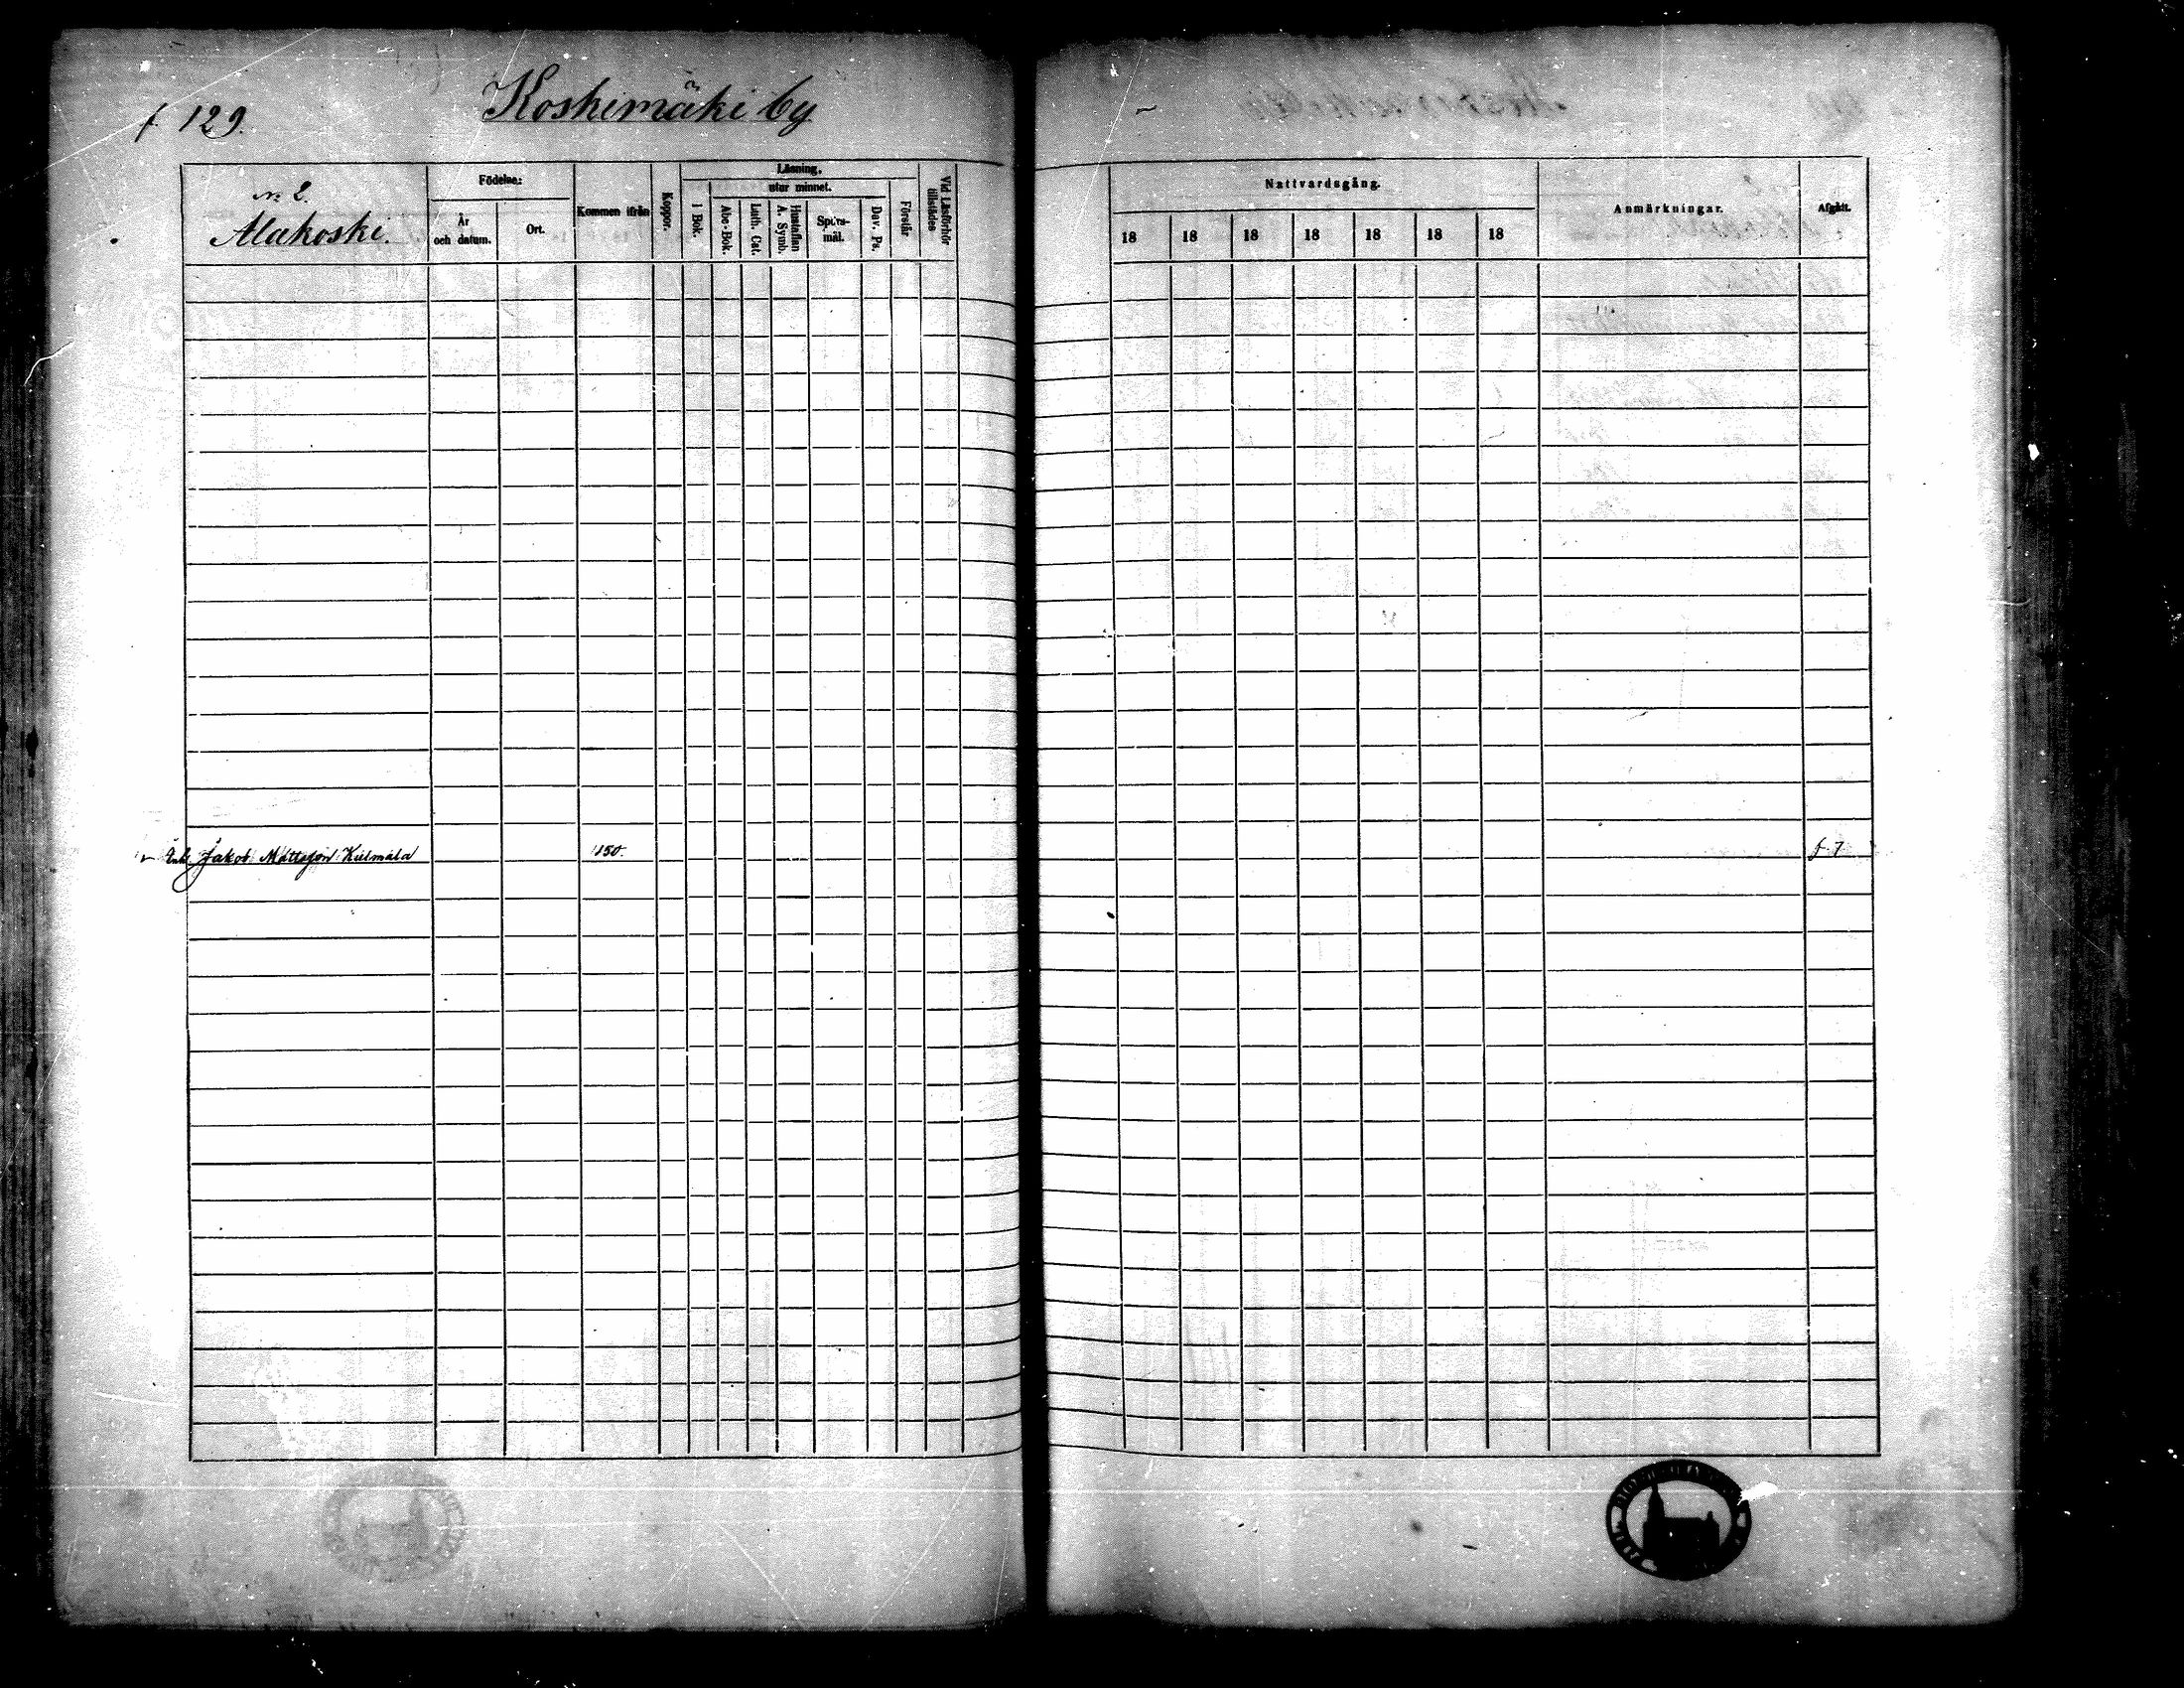 f 129.
Koskimäki by
No 2.
Alakoski.
Födelse:
År och datum.
Ort.
Kommen ifrån
Koppor.
Läsning,
i Bok.
utur minnet.
Abc-Bok.
Luth. Cat.
Hustaflan A. Symb.
Spörs-mål.
Dav. Ps.
Förstår
Vid Läsförhör tillstädes
Nattvardsgång.
18 18 18 18 18 18 18
Anmärkningar.
Afgått.
Enk. Jakob Mattsson 150. f 7